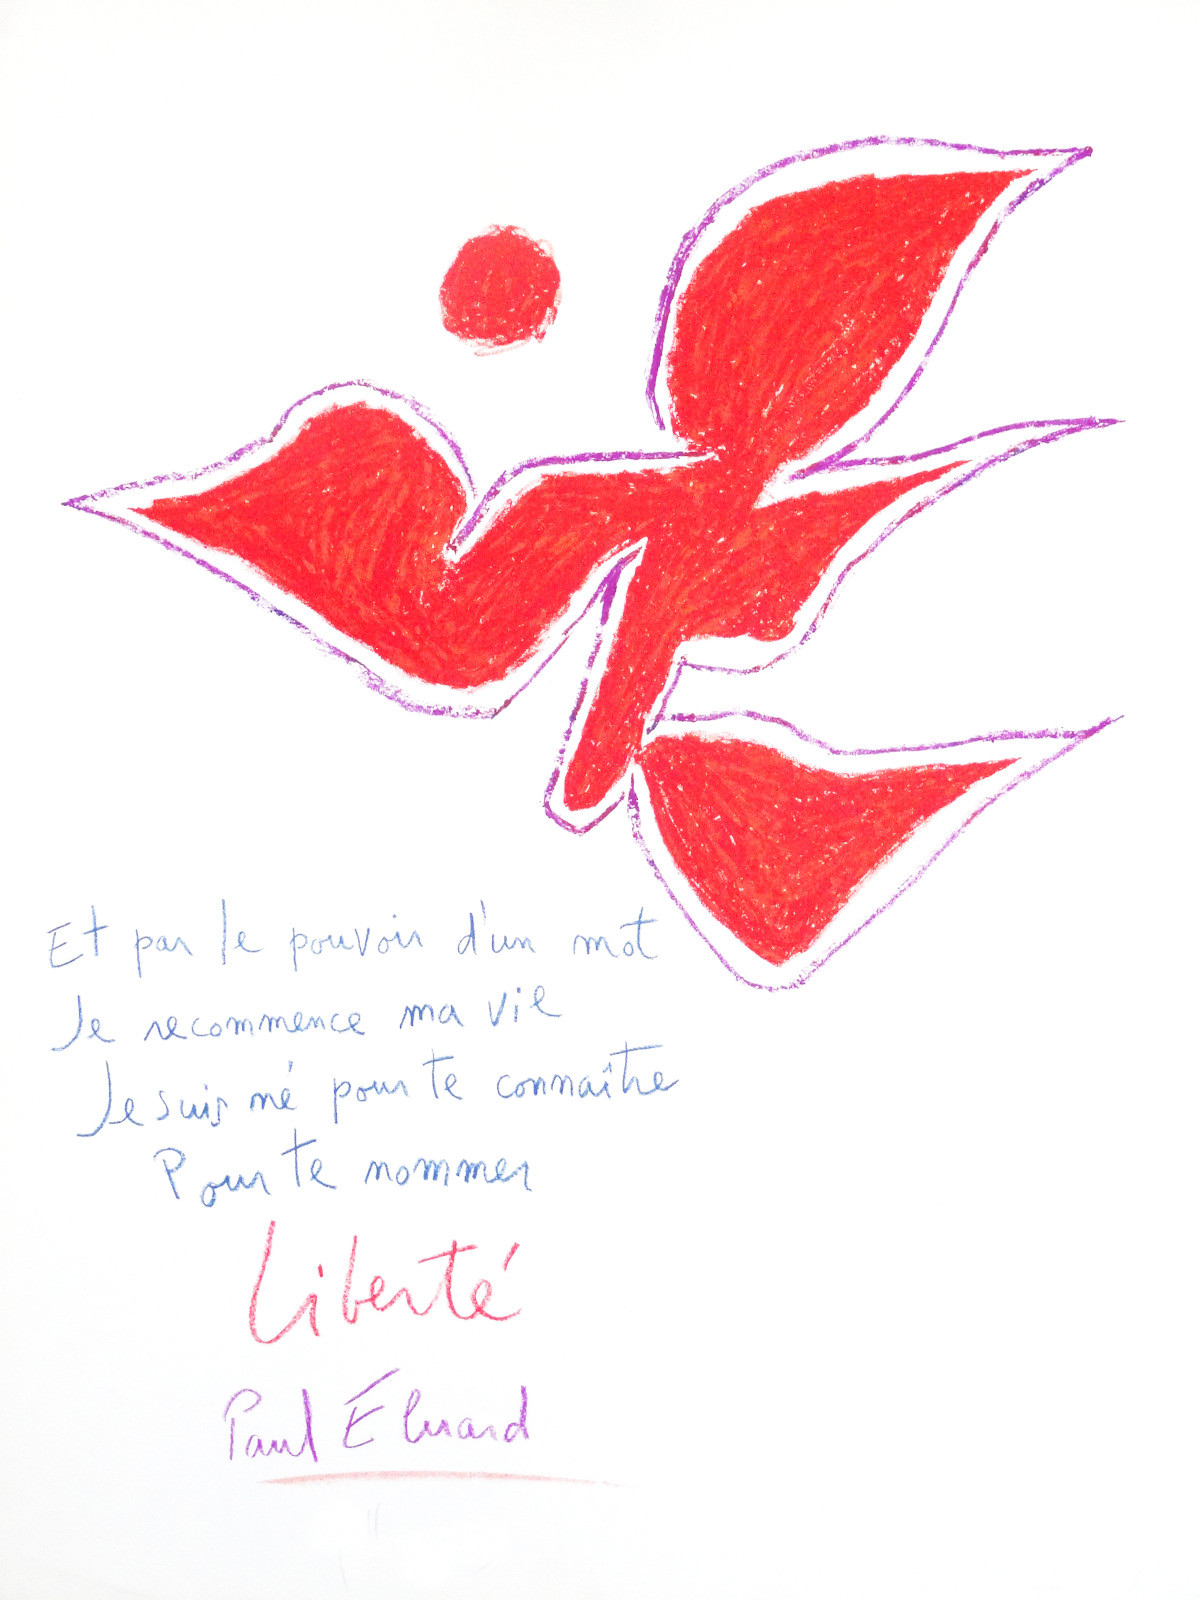 Et par le pouvoir d'un mot
Je recommence ma vie
Je suis né pour te connaître
Pour te nommer
Liberté
Paul Éluard